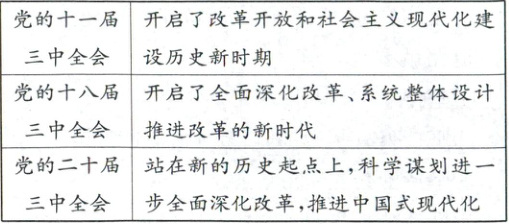 党的十一届 开启了改革开放和社会主义现代化建
三中全会 设历史新时期
党的十八届 开启了全面深化改革、系统整体设计
三中全会 推进改革的新时代
党的二十届 站在新的历史起点上,科学谋划进一
三中全会 步全面深化改革,推进中国式现代化